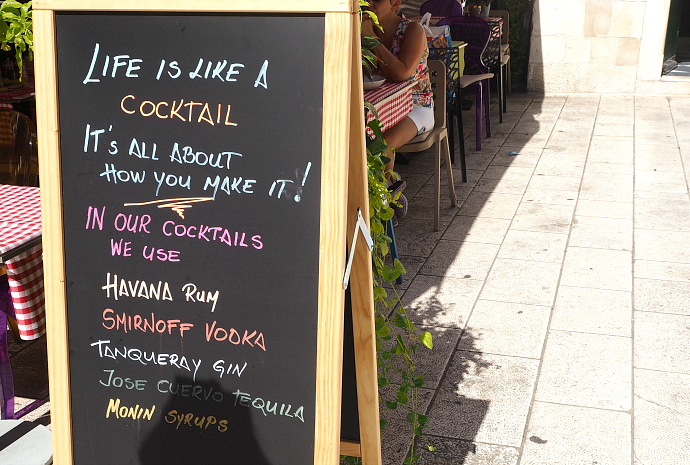 LIFE IS LIKE A
COCKTAIL
IT'S ALL ABOUT
HOW YOU MAKE IT!
IN OUR COCKTAILS
WE USE
HAVANA RUM
SMIRNOFF VODKA
TANQUERAY GIN
JOSE CUERVO TEQUILA
MONIN SYRUPS